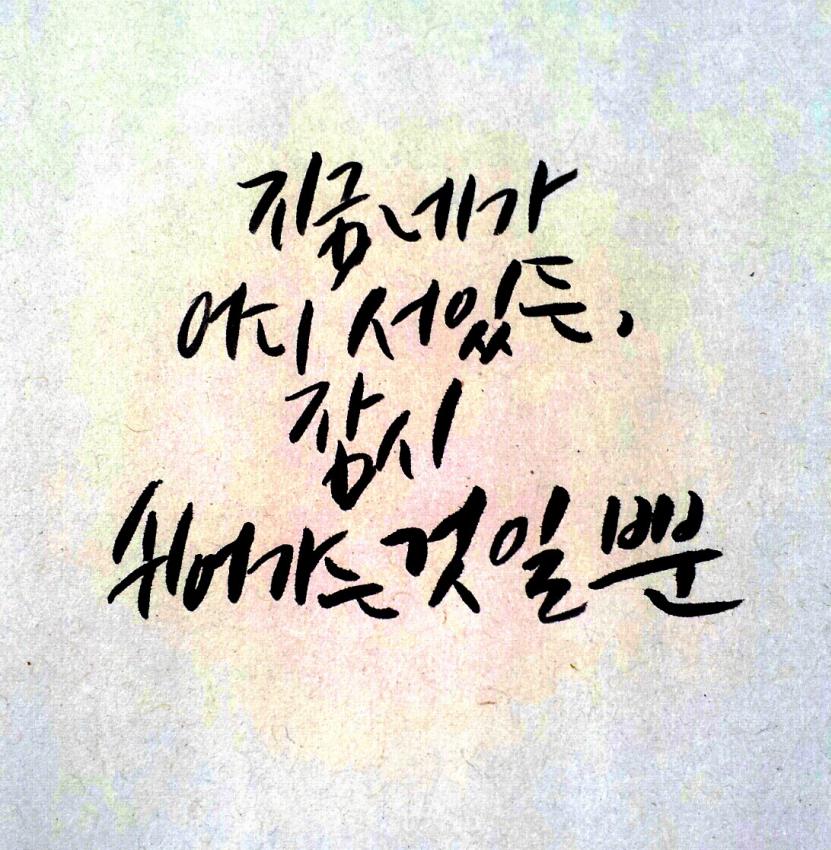 지금 네가
어디 서있든,
잠시
쉬어가는 것일 뿐